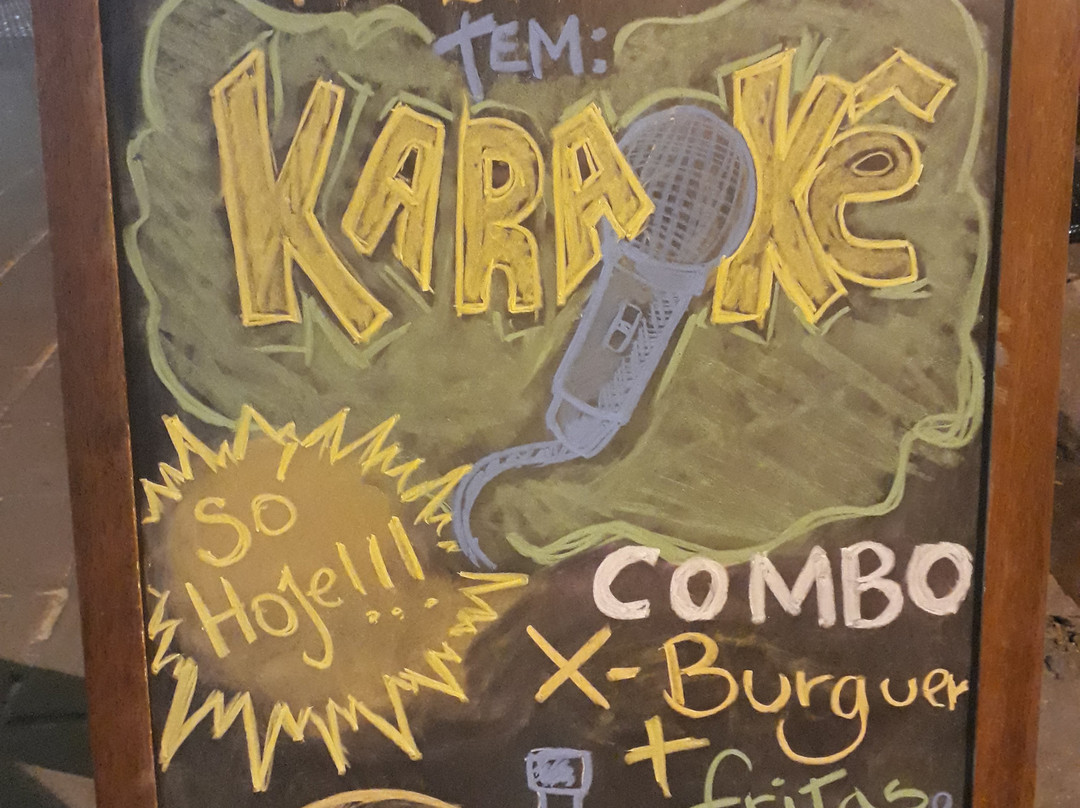 TEM:
KARAOKÊ
So
Hoje!!!
COMBO
X-Burguer
+
fritas